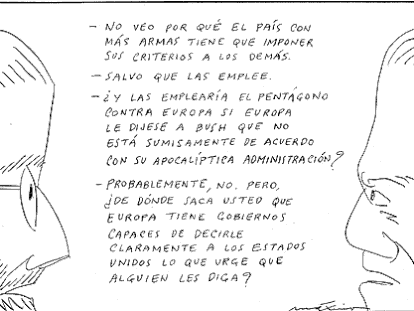 - NO VEO POR QUÉ EL PAÍS CON
MÁS ARMAS TIENE QUE IMPONER
SUS CRITERIOS A LOS DEMÁS.
- SALVO QUE LAS EMPLEE.
- ¿Y LAS EMPLEARÍA EL PENTÁGONO
CONTRA EUROPA SI EUROPA
LE DIJESE A BUSH QUE NO
ESTÁ SUMISAMENTE DE ACUERDO
CON SU APOCALÍPTICA ADMINISTRACIÓN?
- PROBABLEMENTE, NO. PERO,
¿DE DÓNDE SACA USTED QUE
EUROPA TIENE GOBIERNOS
CAPACES DE DECIRLE
CLARAMENTE A LOS ESTADOS
UNIDOS LO QUE URGE QUE
ALGUIEN LES DIGA?